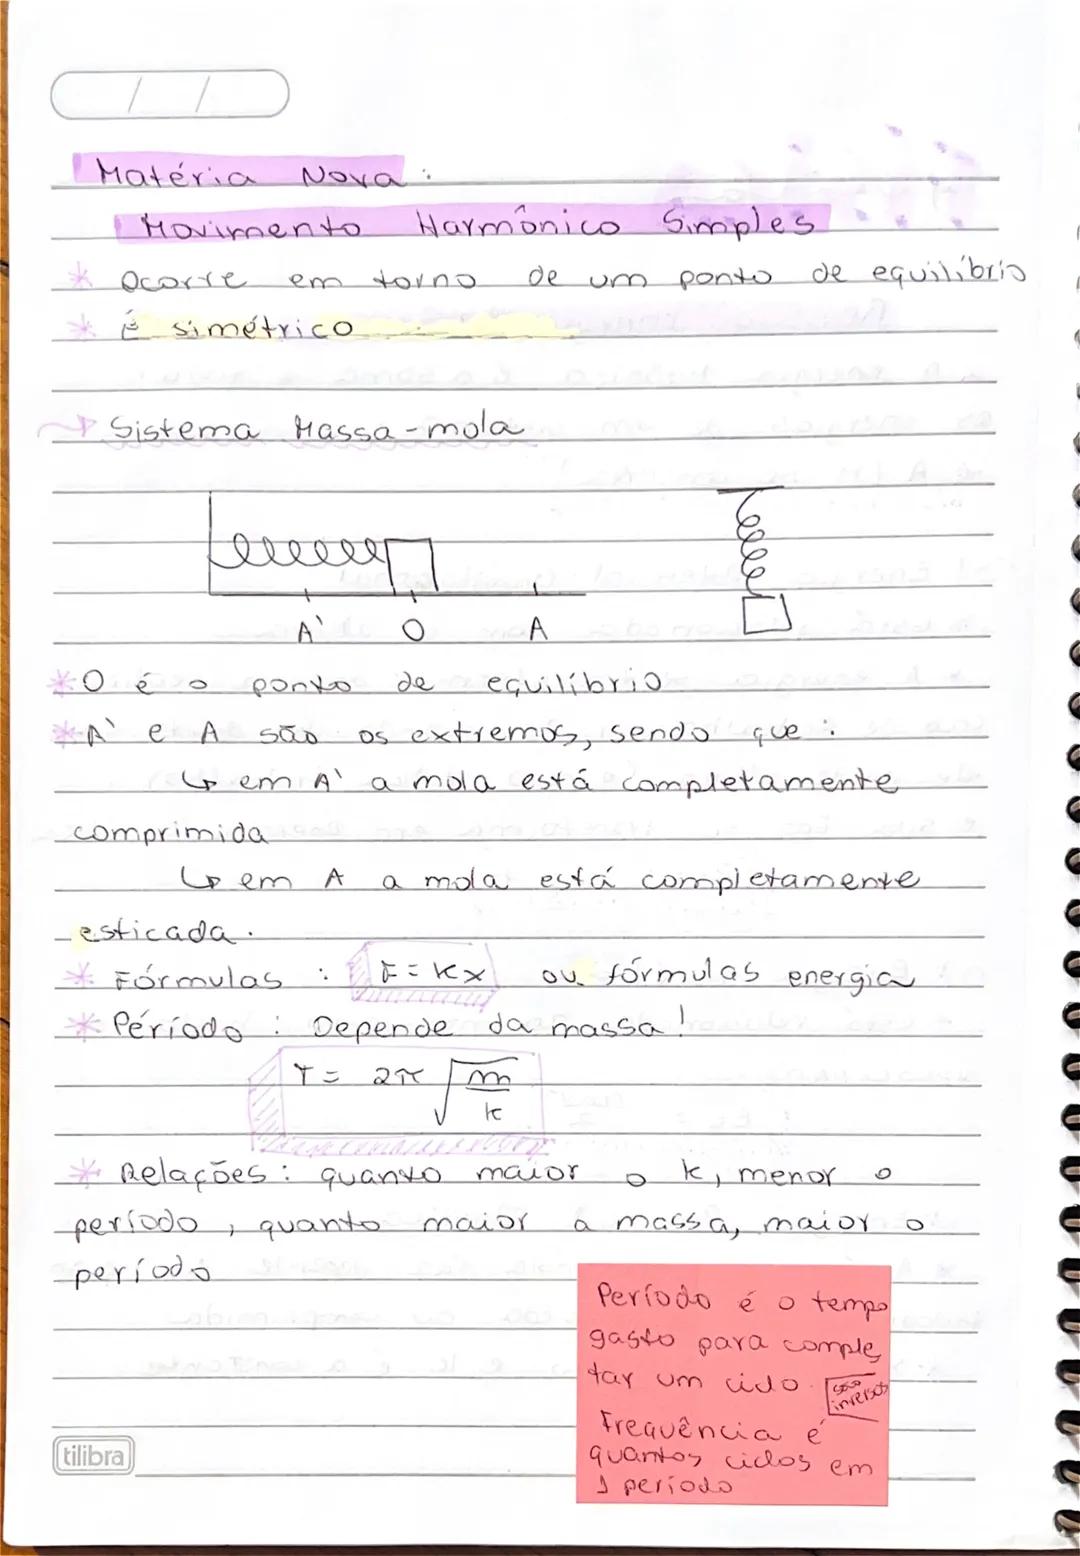 / /
Matéria Nova :
Movimento Harmônico Simples
* Ocorre em torno de um ponto de equilíbrio
* É simétrico
Sistema Massa-mola
A' O A
* O é o ponto de equilíbrio
* A' e A são os extremos, sendo que :
↳ em A' a mola está completamente
comprimida
↳ em A a mola está completamente
esticada.
* Fórmulas : F = kx ou fórmulas energia
* Período : Depende da massa!
T = 2π √m/k
* Relações: quanto maior o k, menor o
período, quanto maior a massa, maior o
período
Período é o tempo
gasto para comple
tar um ciclo.
são inversos
Frequência é
quantos ciclos em
1 período
tilibra